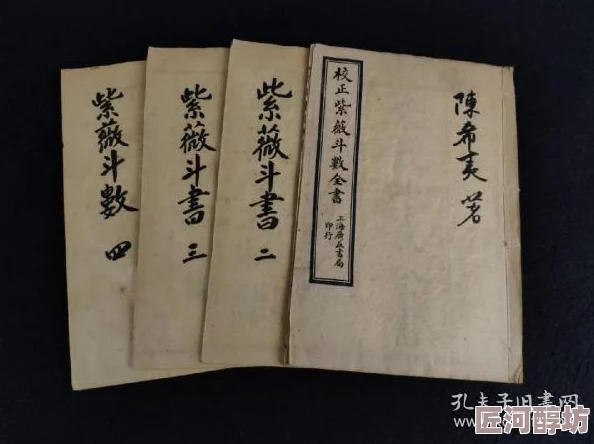 陳希夷著
校正紫薇斗數全書
上海廣益書局
印行
紫薇斗書 二
紫薇斗書 三
紫薇斗數 四
孔夫子旧書网
匠河醇坊